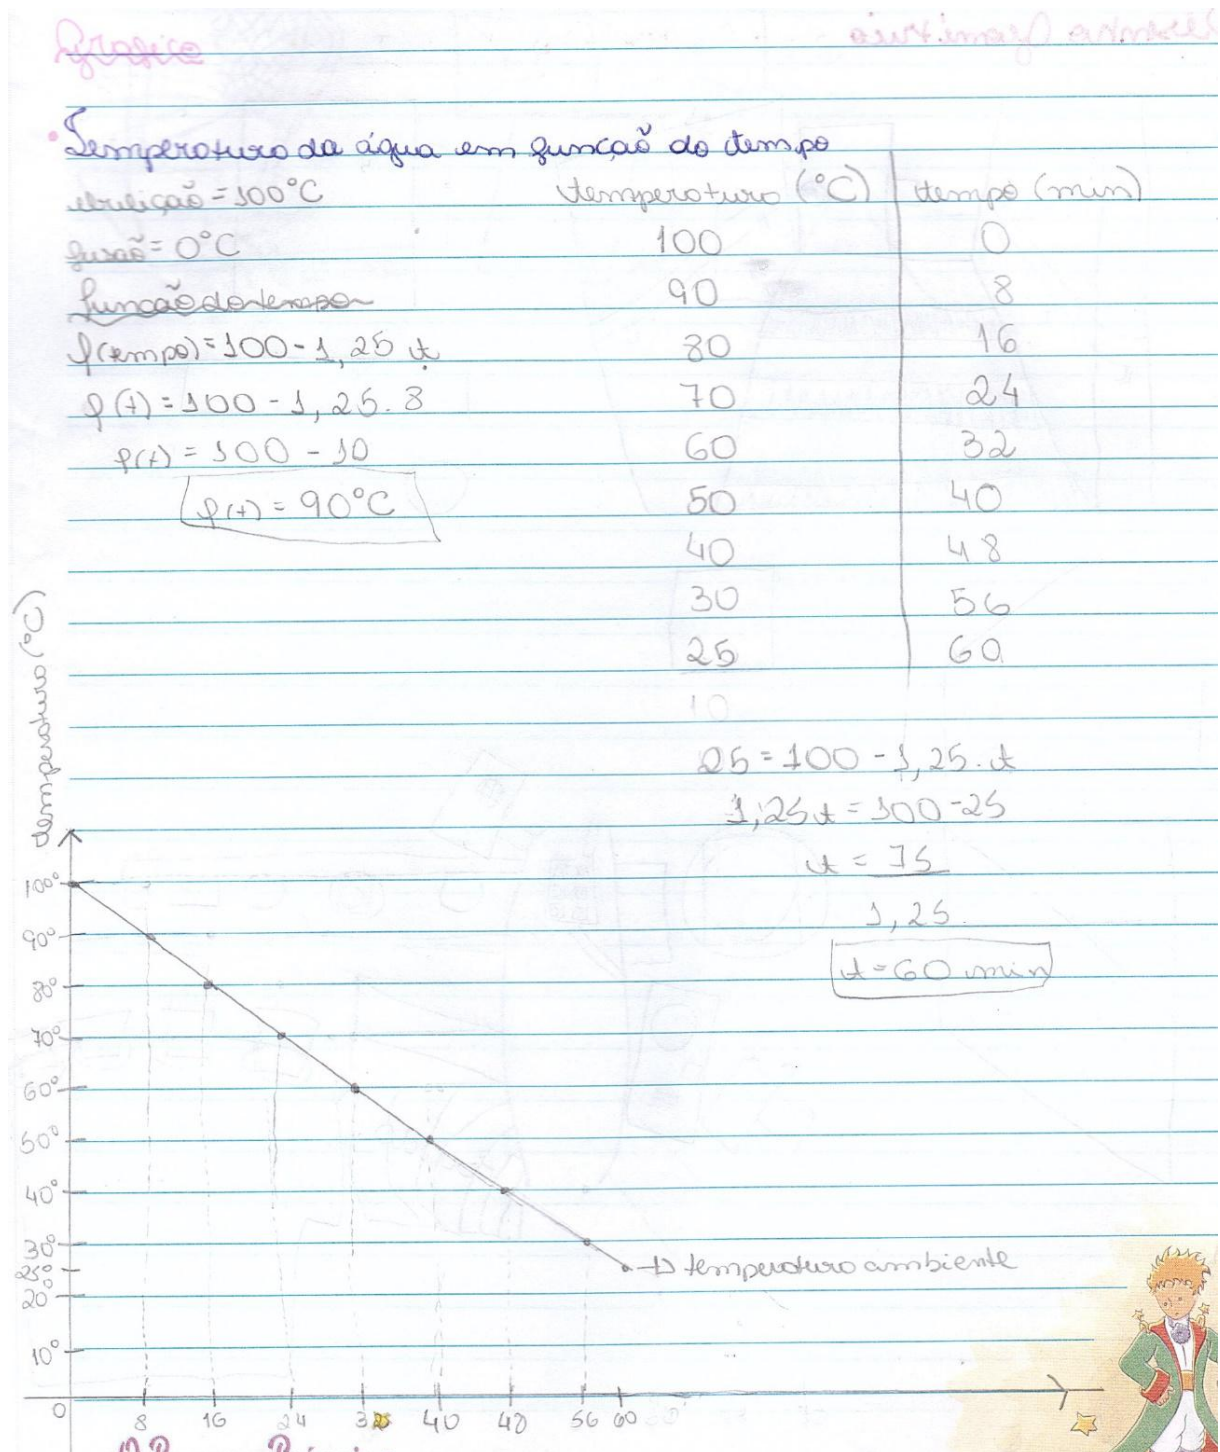 Grafico
Temperatura da água em função do tempo
ebulição = 100°C
fusão = 0°C
função do tempo
f(tempo) = 100 - 1,25 t
f(t) = 100 - 1,25 . 8
f(t) = 100 - 10
f(t) = 90°C
temperatura (°C) tempo (min)
100 0
90 8
80 16
70 24
60 32
50 40
40 48
30 56
25 60
10
25 = 100 - 1,25 . t
1,25t = 100 - 25
t = 75
1,25
t = 60 min
temperatura (°C)
100°
90°
80°
70°
60°
50°
40°
30°
25°
20°
10°
temperatura ambiente
0 8 16 24 32 40 48 56 60